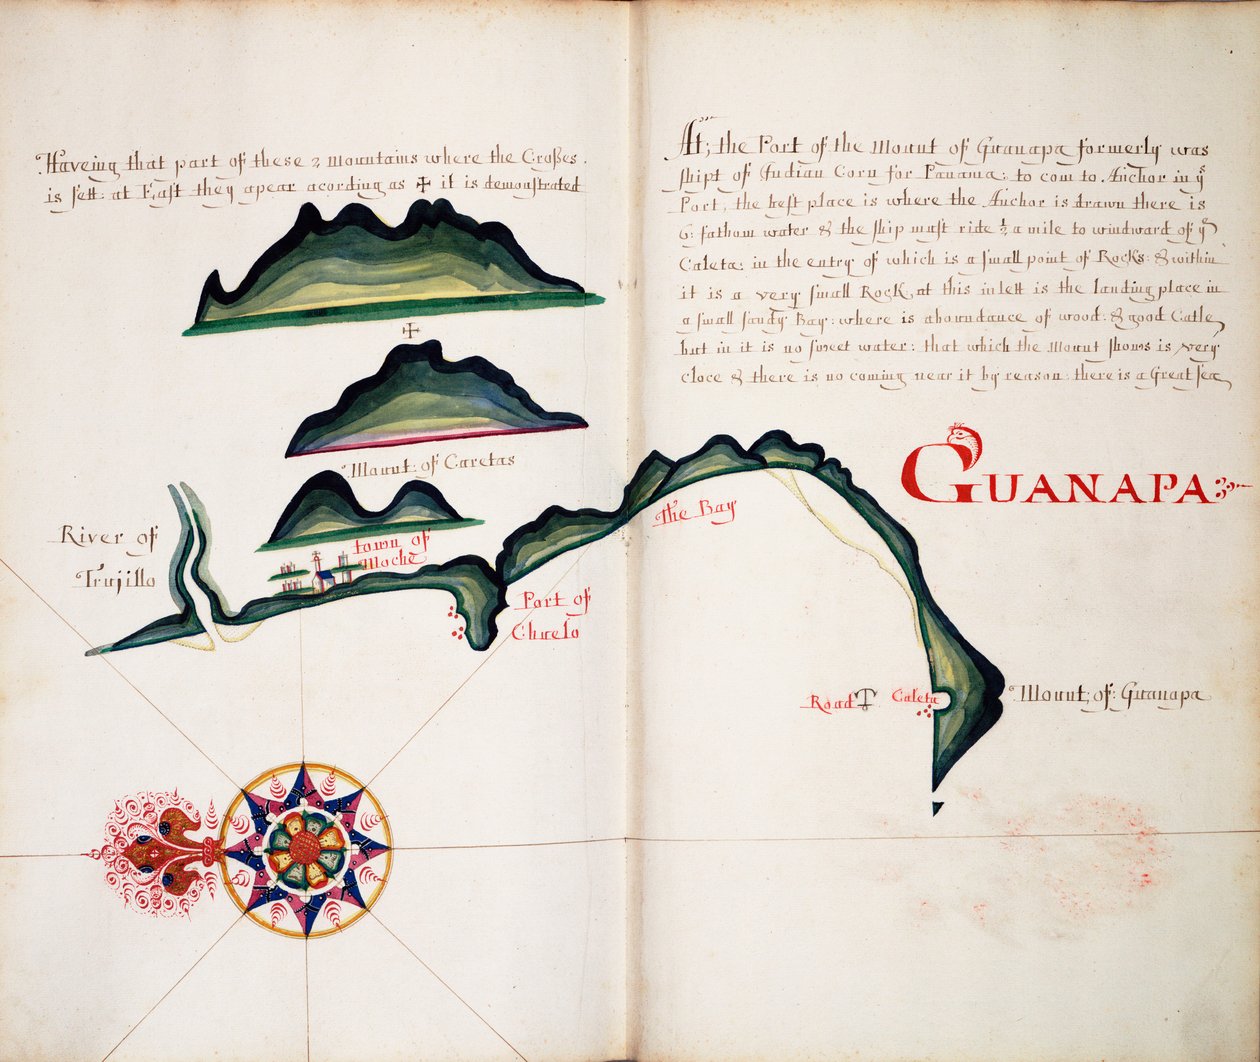 Haveing that part of these 2 mountains where the Crosses
is sett at East they apear acording as ✢ it is demonstrated
Mount of Caretas
River of
Trujillo
town of
Moche
Port of
Chuelo
the Bay
At; the Port of the Mount of Guanapa formerly was
shipt of Indian Corn for Panama: to com to Anchor in yͤ
Port, the best place is where the Anchor is drawn there is
6: fathom water & the ship must ride ½ a mile to windward of yͤ
Caleta: in the entry of which is a small point of Rocks: & within
it is a very small Rock, at this inlett is the landing place in
a small sandy Bay: where is aboundance of wood: & good Catle
but in it is no sweet water: that which the Mount shows is very
cloce & there is no coming near it by reason: there is a Great sea
GUANAPA
Road
Caleta
Mount; of: Guanapa